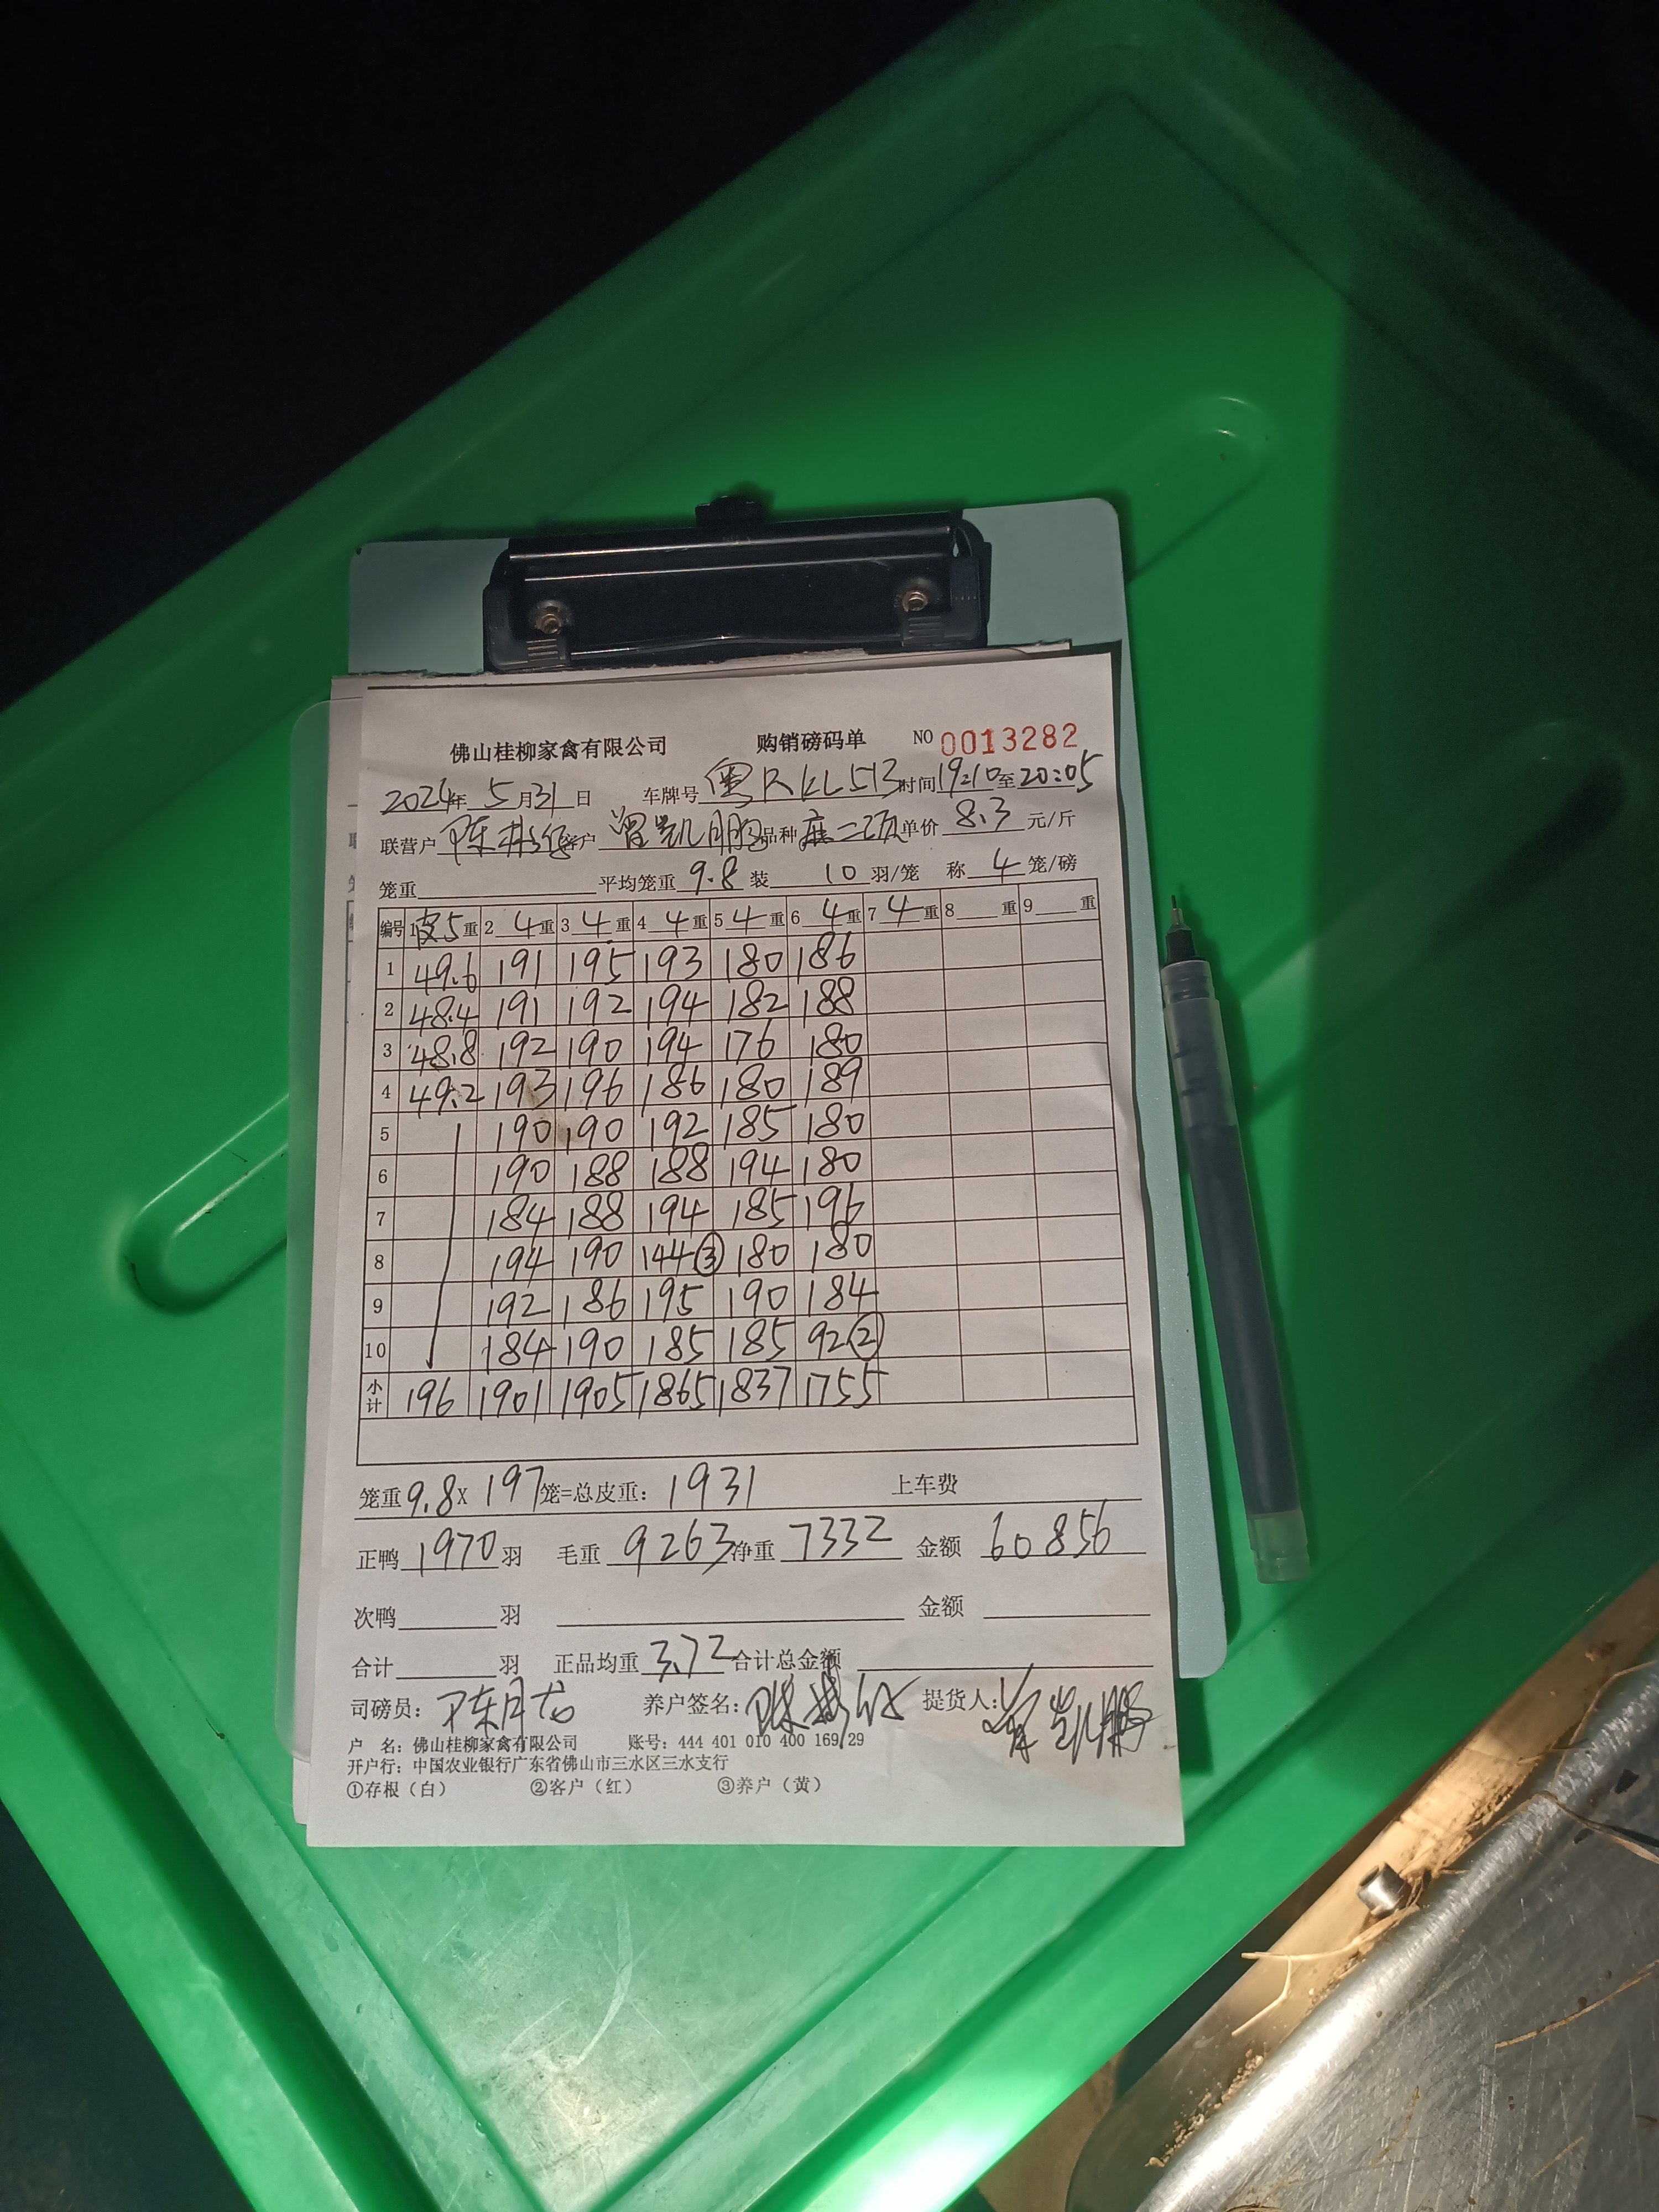 佛山桂柳家禽有限公司 购销磅码单 NO 0013282
2024年 5月31日 车牌号 粤RKL513 时间19:10至20:05
联营户 陈 客户 曾凯鹏 品种 麻二 单价 8.3 元/斤
笼重 平均笼重 9.8 装 10 羽/笼 称 4 笼/磅
编号 1皮5重 2 4重 3 4重 4 4重 5 4重 6 4重 7 4重 8 重 9 重
1 49.6 191 195 193 180 186
2 48.4 191 192 194 182 188
3 48.8 192 190 194 176 180
4 49.2 193 196 186 180 189
5 190 190 192 185 180
6 190 188 188 194 180
7 184 188 194 185 196
8 194 190 144③ 180 180
9 192 186 195 190 184
10 184 190 185 185 92②
小计 196 1901 1905 1865 1837 1755
笼重9.8X 197笼=总皮重: 1931 上车费
正鸭 1970 羽 毛重 9263 净重 7332 金额 60856
次鸭 羽 金额
合计 羽 正品均重 3.72 合计总金额
司磅员: 陈月龙 养户签名: 陈 提货人: 曾凯鹏
户 名: 佛山桂柳家禽有限公司 账号: 444 401 010 400 169 29
开户行: 中国农业银行广东省佛山市三水区三水支行
①存根(白) ②客户(红) ③养户(黄)